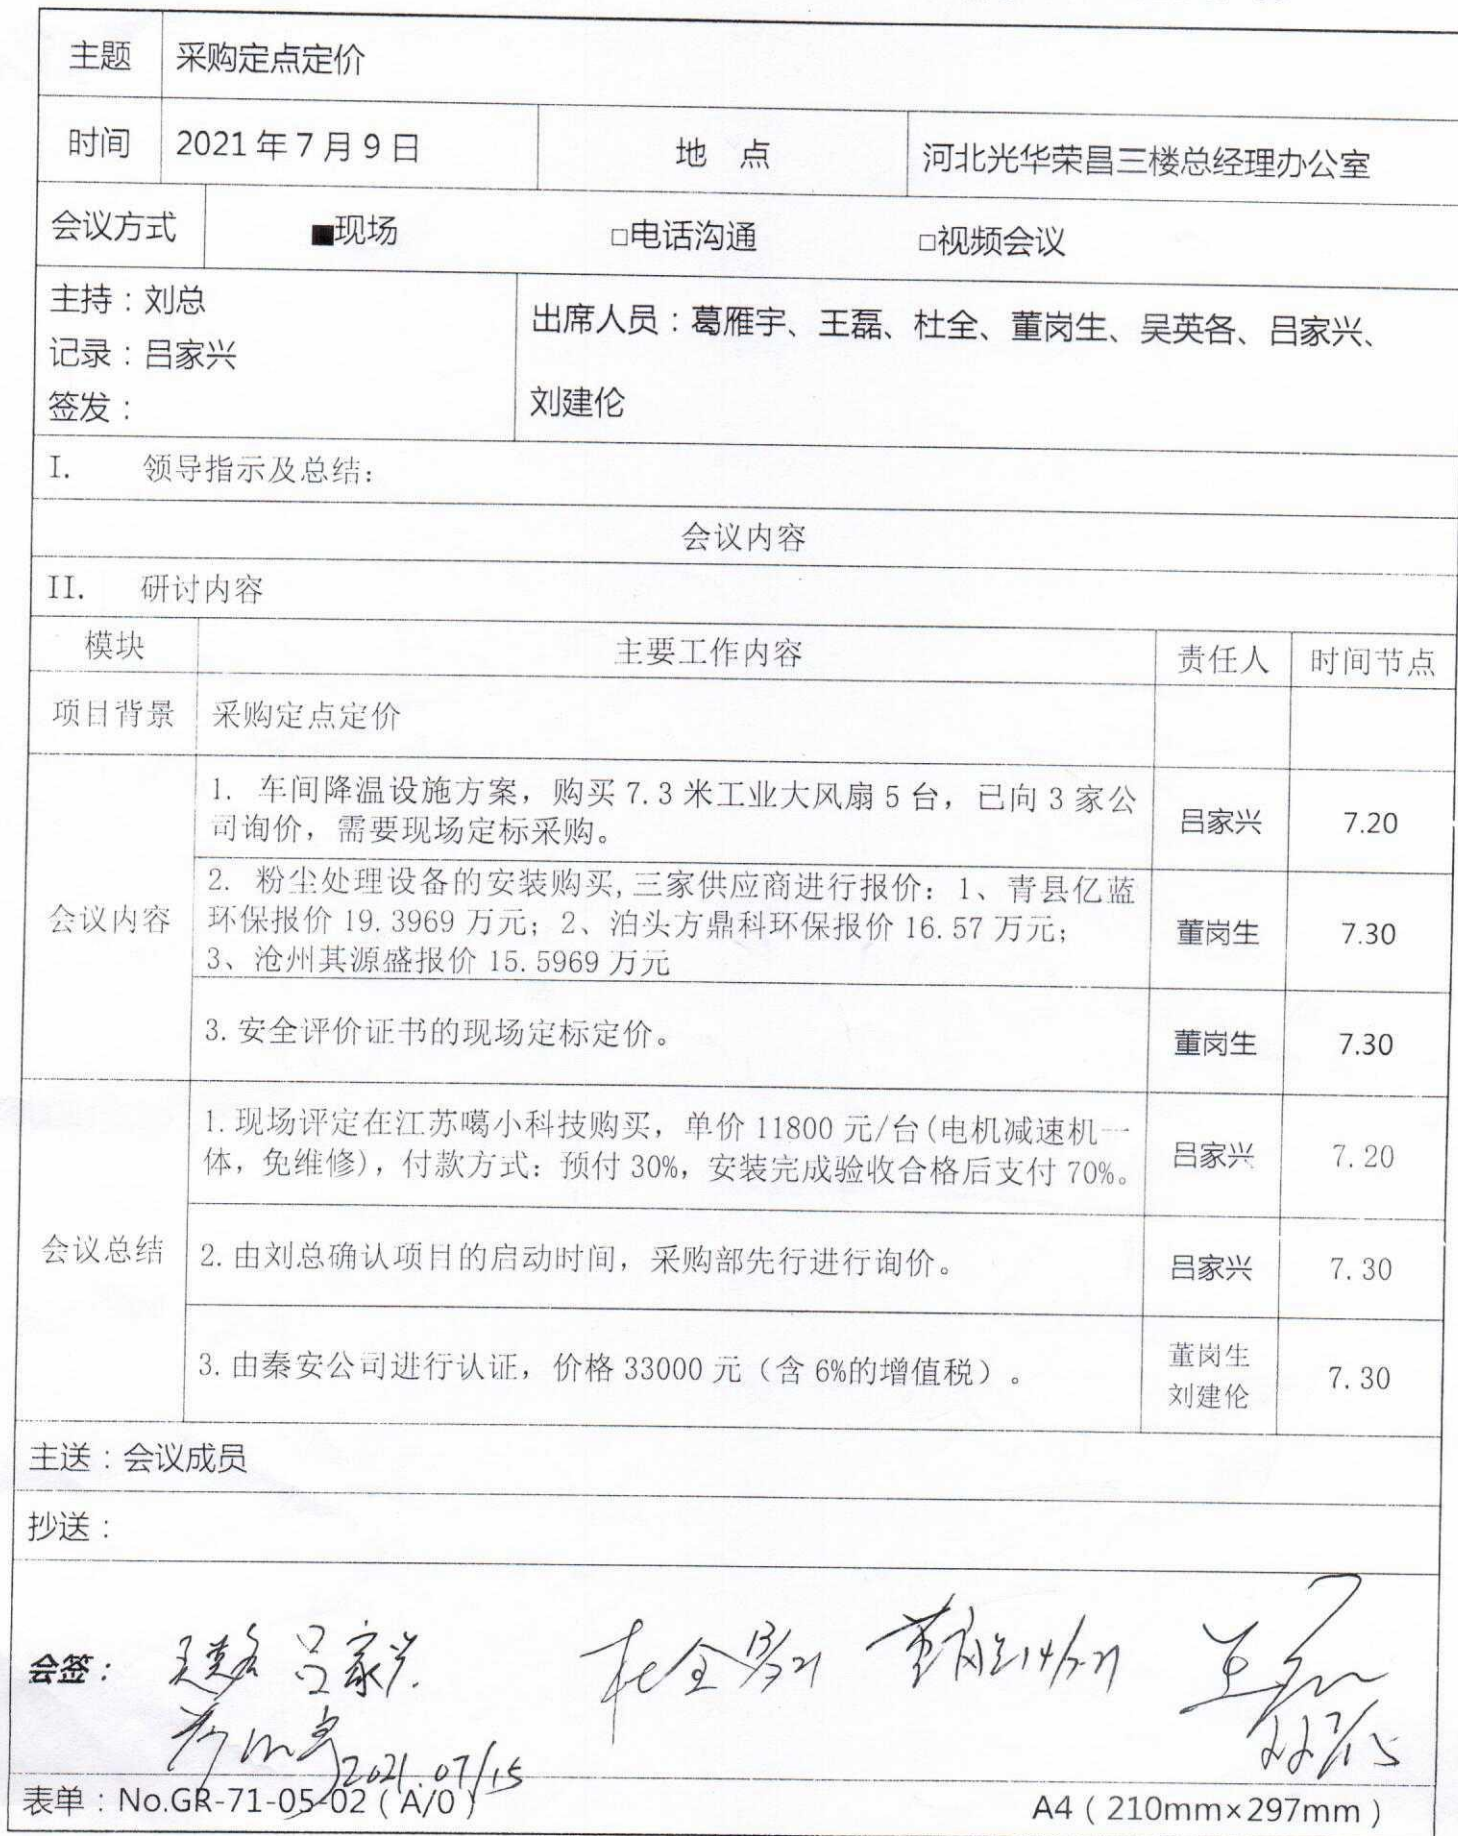 主题 采购定点定价
时间 2021年7月9日 地 点 河北光华荣昌三楼总经理办公室
会议方式 ■现场 □电话沟通 □视频会议
主持：刘总
记录：吕家兴
签发：
出席人员：葛雁宇、王磊、杜全、董岗生、吴英各、吕家兴、
刘建伦
I. 领导指示及总结：
会议内容
II. 研讨内容
模块 主要工作内容 责任人 时间节点
项目背景 采购定点定价
会议内容
1. 车间降温设施方案，购买 7.3 米工业大风扇 5 台，已向 3 家公
司询价，需要现场定标采购。
吕家兴 7.20
2. 粉尘处理设备的安装购买,三家供应商进行报价：1、青县亿蓝
环保报价 19.3969 万元；2、泊头方鼎科环保报价 16.57 万元；
3、沧州其源盛报价 15.5969 万元
董岗生 7.30
3.安全评价证书的现场定标定价。 董岗生 7.30
会议总结
1.现场评定在江苏噶小科技购买，单价 11800 元/台(电机减速机一
体，免维修)，付款方式：预付 30%，安装完成验收合格后支付 70%。
吕家兴 7.20
2.由刘总确认项目的启动时间，采购部先行进行询价。 吕家兴 7.30
3.由秦安公司进行认证，价格 33000 元（含 6%的增值税）。 董岗生
刘建伦 7.30
主送：会议成员
抄送：
会签： 吴英各 吕家兴 杜全 董岗生14/7-21 王磊
2021.07/15
表单：No.GR-71-05-02（A/0） A4（210mm×297mm）